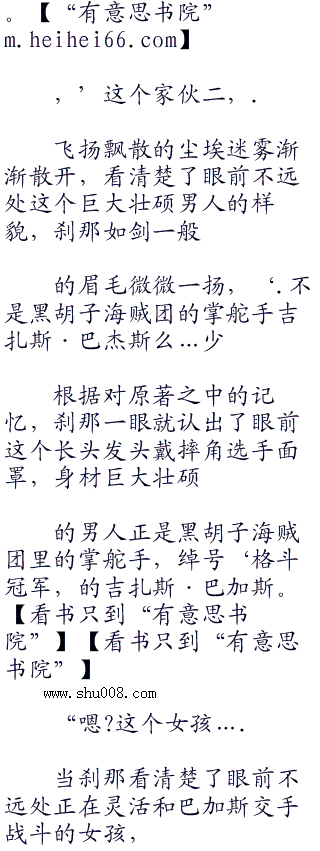 。【“有意思书院”
m.heihei66.com】
，’这个家伙二，.
飞扬飘散的尘埃迷雾渐
渐散开，看清楚了眼前不远
处这个巨大壮硕男人的样
貌，刹那如剑一般
的眉毛微微一扬，‘.不
是黑胡子海贼团的掌舵手吉
扎斯·巴杰斯么…少
根据对原著之中的记
忆，刹那一眼就认出了眼前
这个长头发头戴摔角选手面
罩，身材巨大壮硕
的男人正是黑胡子海贼
团里的掌舵手，绰号‘格斗
冠军，的吉扎斯·巴加斯。
【看书只到“有意思书
院”】【看书只到“有意思
书院”】
www.shu008.com
“嗯?这个女孩….
当刹那看清楚了眼前不
远处正在灵活和巴加斯交手
战斗的女孩，